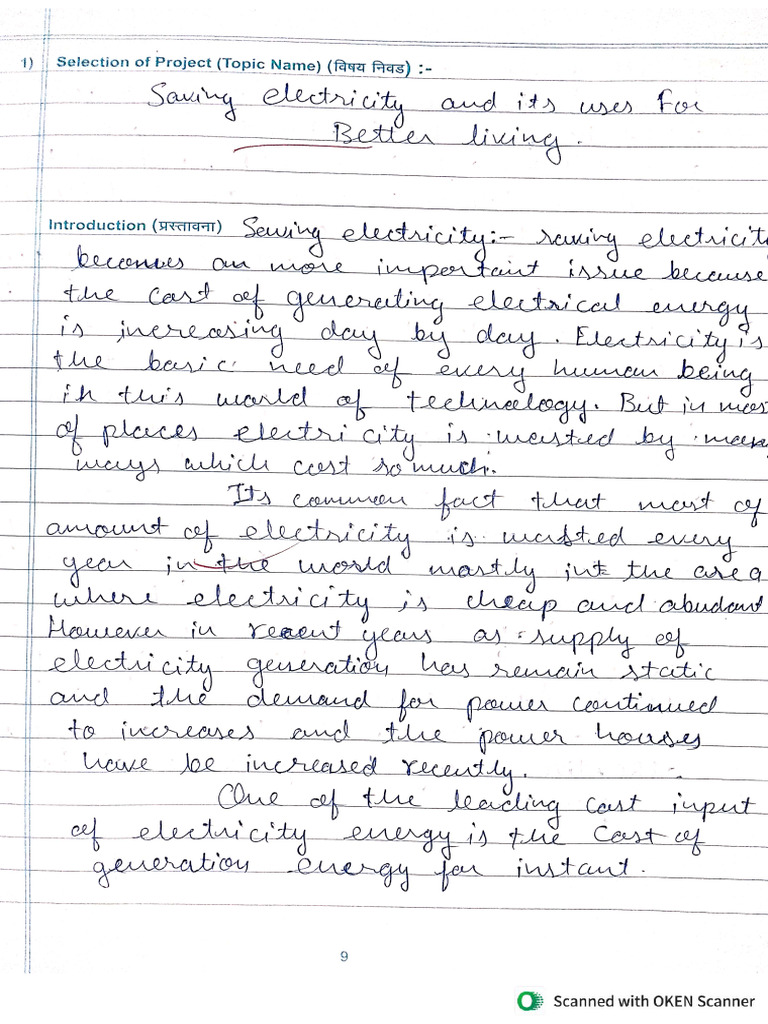 1) Selection of Project (Topic Name) (विषय निवड) :-
Saving electricity and its uses for
Better living.
Introduction (प्रस्तावना) Saving electricity:- saving electricity
becomes an more important issue because
the cost of generating electrical energy
is increasing day by day. Electricity is
the basic need of every human being
in this world of technology. But in mos
of places electricity is wasted by many
ways which cost so much.
Its common fact that most of
amount of electricity is wasted every
year in the world mostly int the area
where electricity is cheap and abudant
However in recent years as supply of
electricity generation has remain static
and the demand for power continued
to increases and the power houses
have be increased recently.
One of the leading cost input
of electricity energy is the cost of
generation energy for instant.
9
Scanned with OKEN Scanner